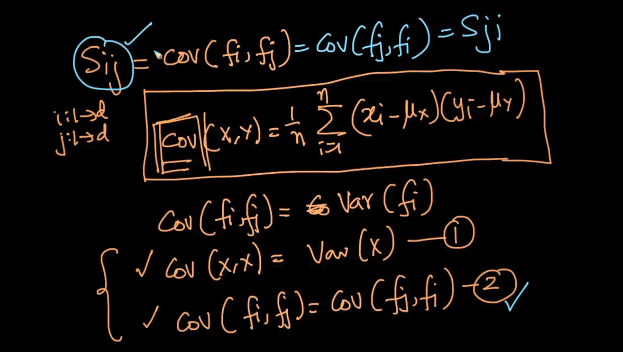 Sij = cov(fi, fj) = cov(fj, fi) = Sji
i: 1→d
j: 1→d
Cov(x, y) = 1/n Σ_{i=1}^{n} (xi - μx)(yi - μy)
Cov(fi, fj) = Var(fi)
✓ Cov(x, x) = Var(x) — ①
✓ Cov(fi, fj) = Cov(fj, fi) — ② ✓